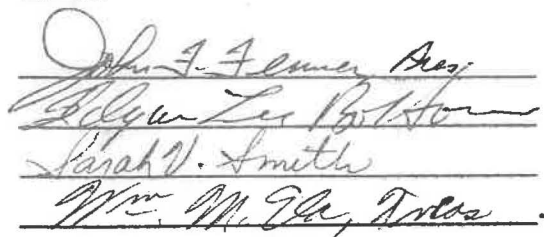 John F. Fenner, Pres.
Edgar Lee Bottom
Sarah V. Smith
Wm. M. Ela, Treas.